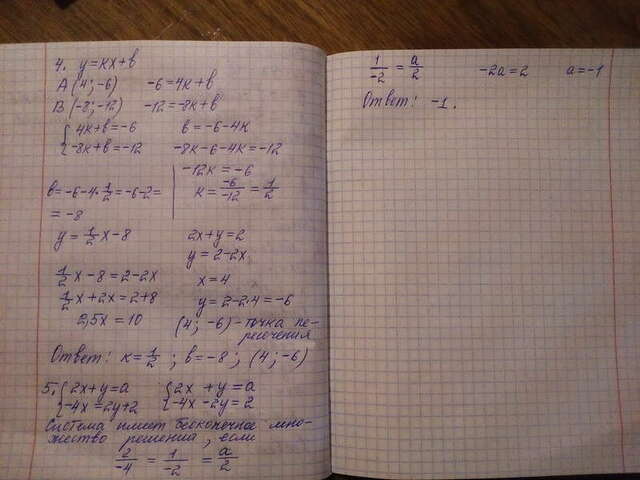 4. y=kx+b
A (4;-6) -6=4k+b
B (-8;-12) -12=-8k+b
{4k+b=-6 b=-6-4k
{-8k+b=-12 -8k-6-4k=-12
-12k=-6
b=-6-4·1/2=-6-2= k=-6/-12=1/2
=-8
y=1/2x-8 2x+y=2
y=2-2x
1/2x-8=2-2x x=4
1/2x+2x=2+8 y=2-2·4=-6
2,5x=10 (4; -6)-точка пе-
ресечения
Ответ: k=1/2; b=-8; (4;-6)
5. {2x+y=a {2x+y=a
{-4x=2y+2 {-4x-2y=2
Система имеет бесконечное мно-
жество решений, если
2/-4=1/-2=a/2
1/-2=a/2 -2a=2 a=-1
Ответ: -1.